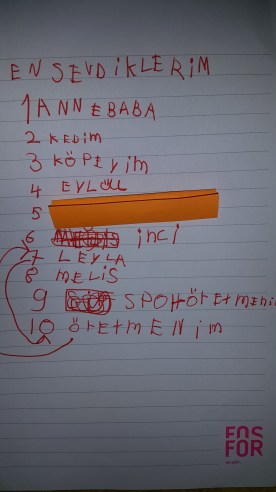 EN SEVDİKLERİM
1 ANNEBABA
2 KEDİM
3 KÖPEYİM
4 EYLÜL
5
6 İNCİ
7 LEYLA
8 MELİS
9 SPOHÖRETMENİ
10 ÖRETMENİM
FOS
FOR